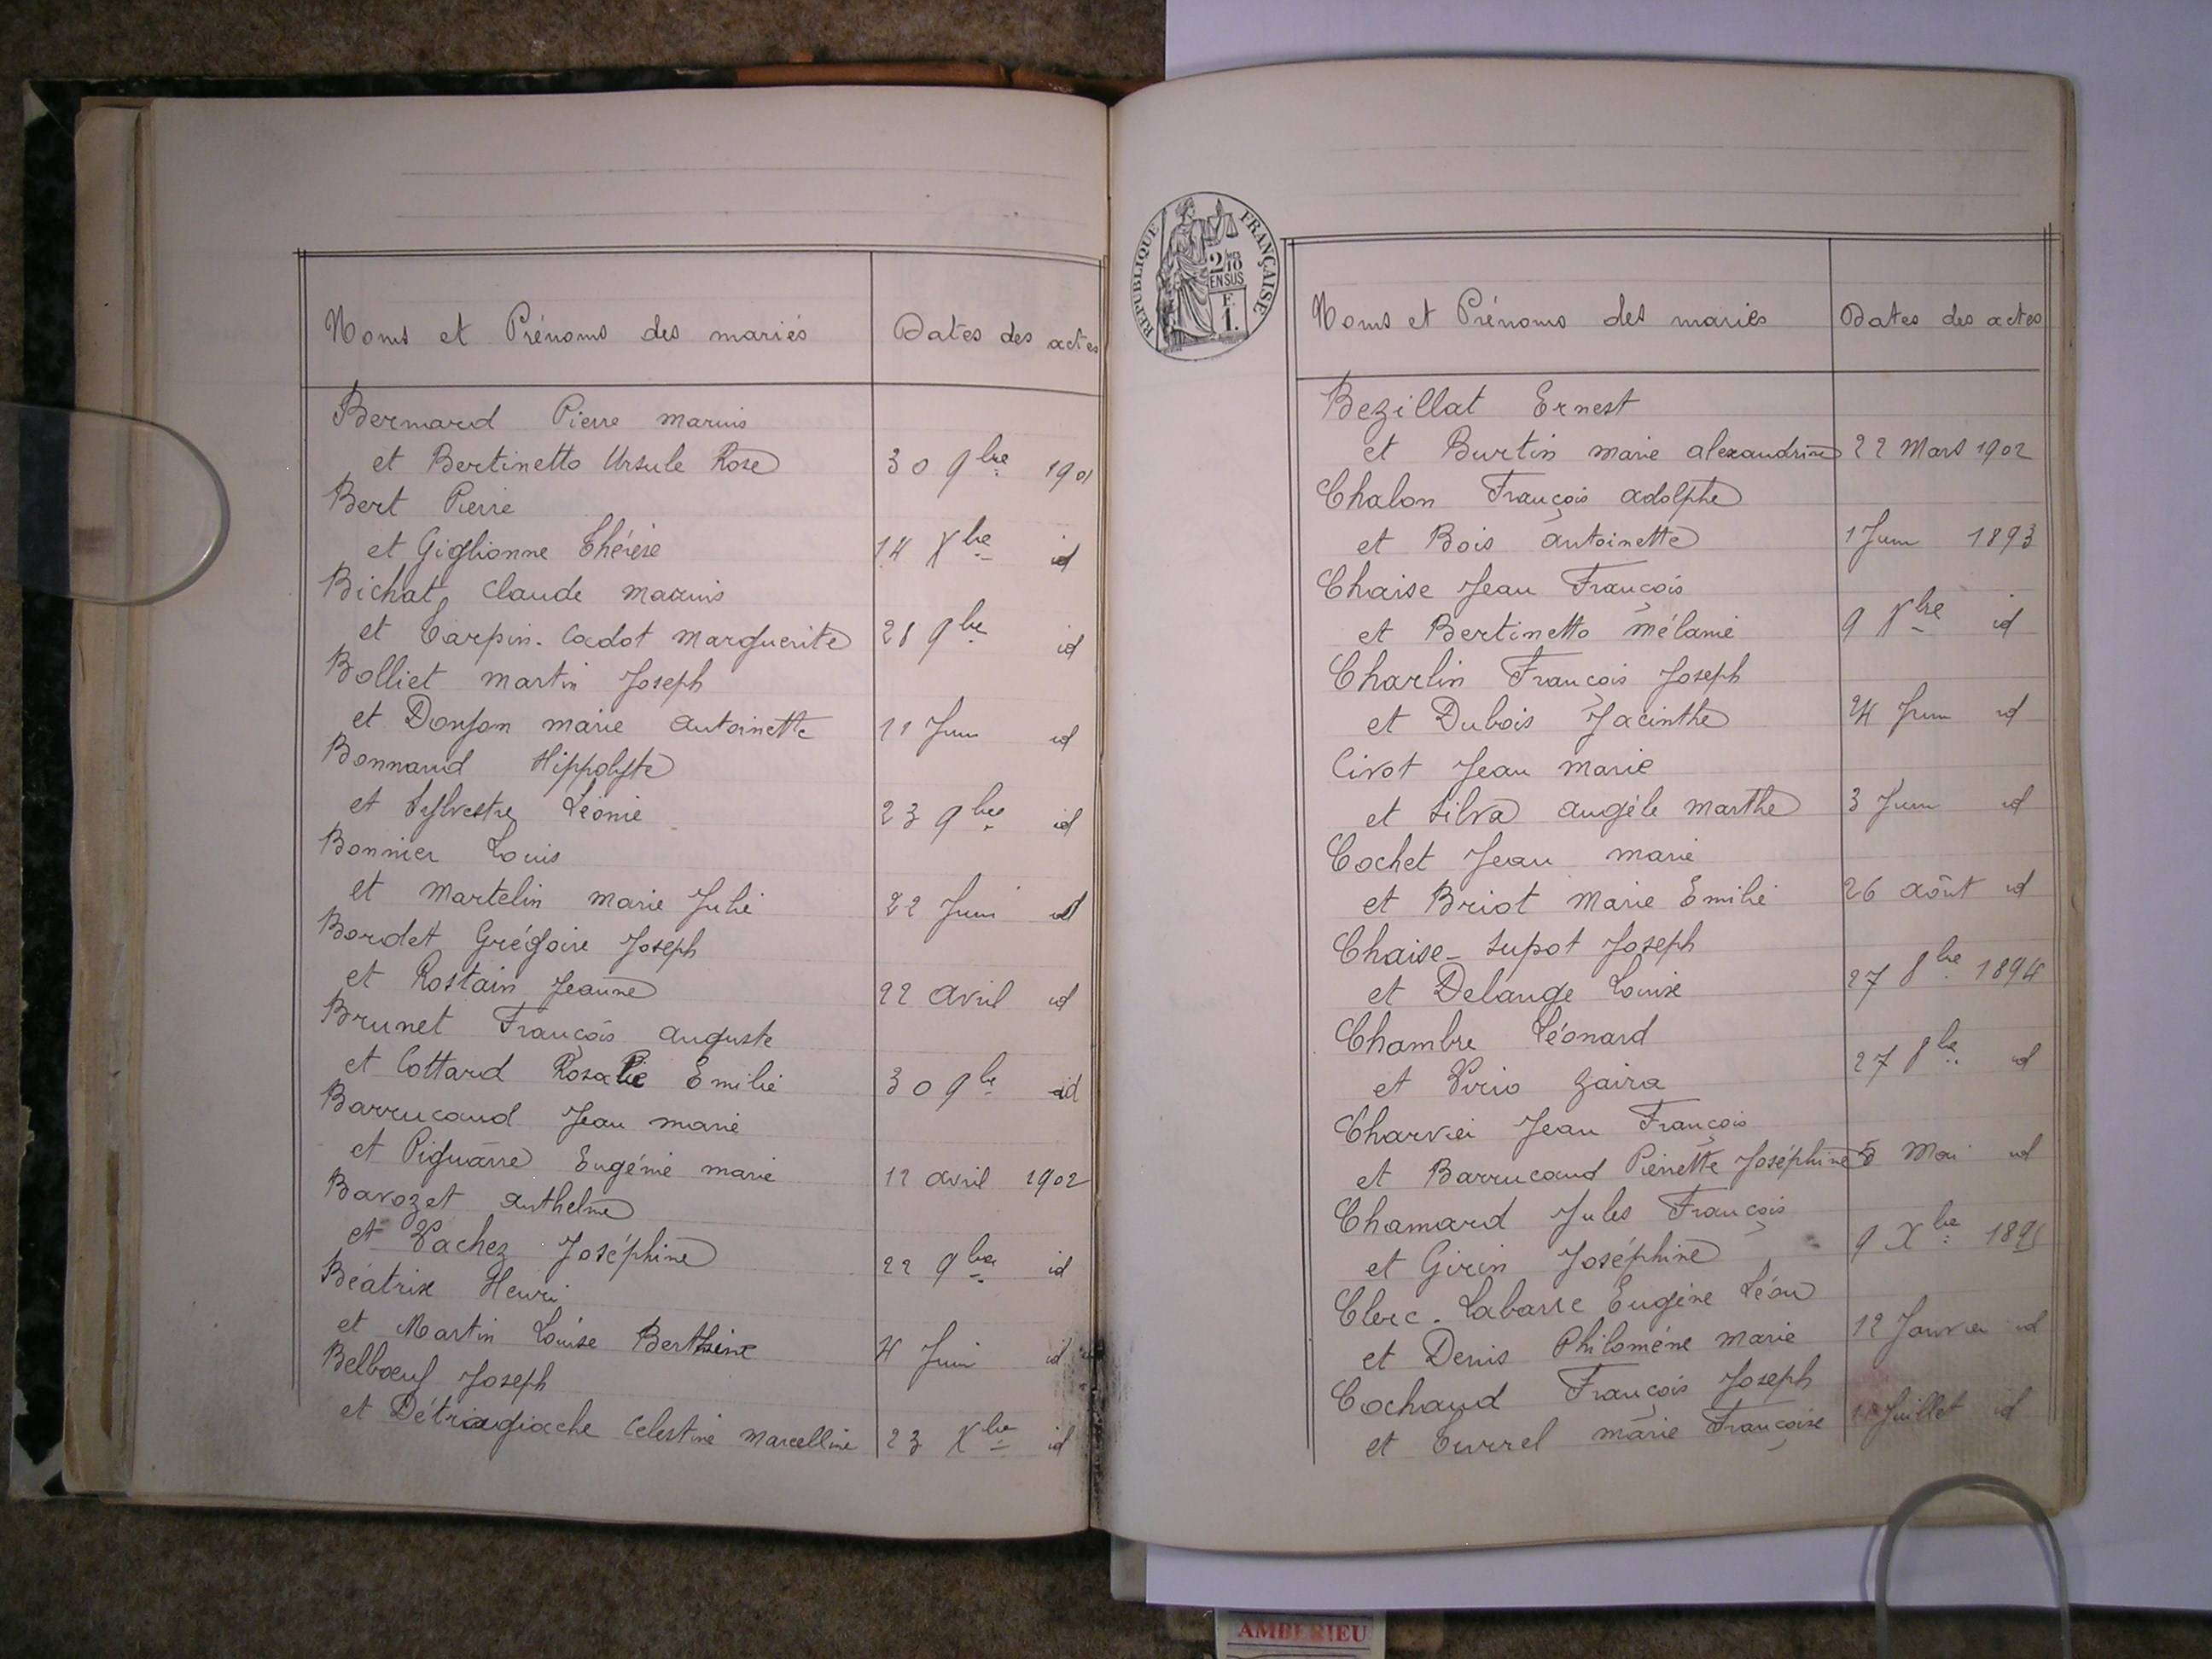 Noms et Prénoms des mariés Dates des actes
Bernard Pierre marius
et Bertinetto Ursule Rose 30 9bre 1901
Bert Pierre
et Giglionne Thérèse 14 Xbre id
Bichat Claude marius
et Carpin-Cadot Marguerite 28 9bre id
Bolliet martin Joseph
et Donjon marie antoinette 11 Juin id
Bonnand Hippolyte
et Sylvestre Léonie 23 9bre id
Bonnier Louis
et Martelin marie Julie 22 Juin id
Bordet Grégoire Joseph
et Rostain Jeanne 22 avril id
Brunet François auguste
et Cottard Rosalie Emilie 30 9bre id
Barrucand Jean marie
et Piguarre Eugénie marie 12 avril 1902
Bavozet anthelme
et Vachez Joséphine 22 9bre id
Béatrix Henri
et Martin Louise Berthine 4 Juin id
Belbœuf Joseph
et Celestine Marcelline 23 Xbre id
REPUBLIQUE FRANÇAISE
2/10 EN SUS
F.
1.
Noms et Prénoms des mariés Dates des actes
Bezillat Ernest
et Burtin marie alexandrine 22 Mars 1902
Chalon François adolphe
et Bois antoinette 1 Juin 1893
Chaise Jean François
et Bertinetto mélanie 9 Xbre id
Charlin François Joseph
et Dubois Jacinthe 24 Juin id
Civot Jean marie
et Silva angèle marthe 3 Juin id
Cochet Jean marie
et Briot Marie Emilie 26 août id
Chaise-Supot Joseph
et Delange Louise 27 8bre 1894
Chambre Léonard
et Virio Zaira 27 8bre id
Charvier Jean François
et Barrucand Pierrette Joséphine 5 Mai id
Chamard Jules François
et Girin Joséphine 9 Xbre 1895
Clerc-Labarre Eugène Léon
et Denis Philomène marie 12 Janvier id
Cochaud François Joseph
et Currel marie Françoise Juillet id
AMBERIEU